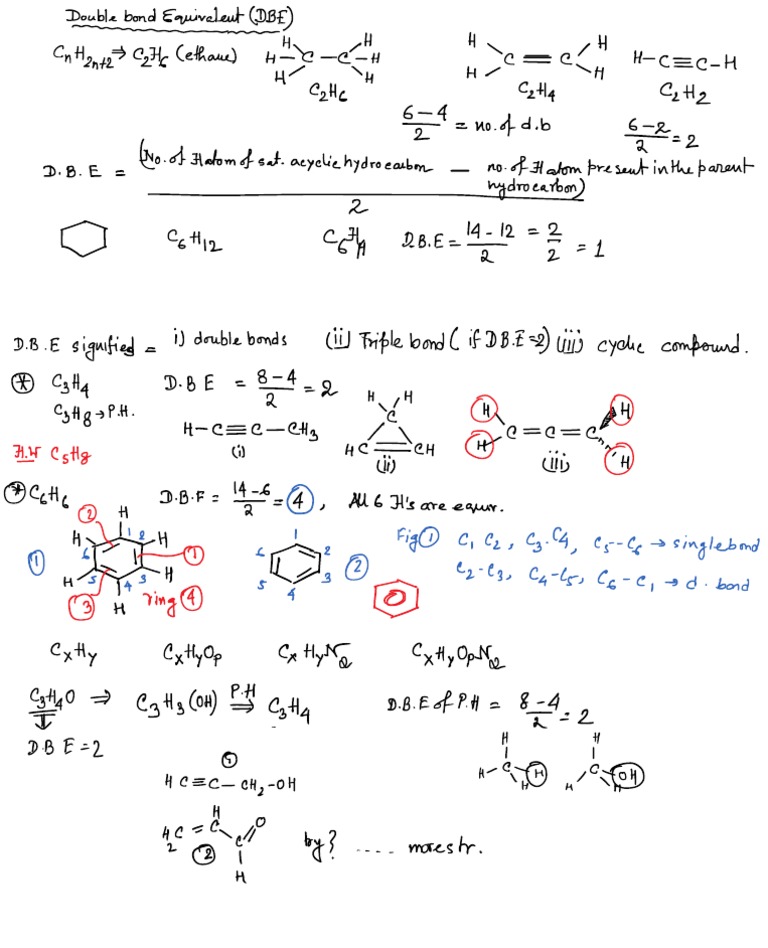 Double bond Equivalent (DBE)
CnH2n+2 ⇒ C2H6 (ethane)
H H
H – C – C – H
H H
C2H6
H H
C = C
H H
C2H4
H–C≡C–H
C2H2
6–4/2 = no. of d.b
6–2/2 = 2
D.B.E = (No. of H atom of sat. acyclic hydrocarbon — no. of H atom present in the parent hydrocarbon)
2
C6H12 C6H D.B.E = 14–12/2 = 2/2 = 1
D.B.E signified = i) double bonds (ii) Triple bond (if DBE=2) (iii) cyclic compound.
* C3H4 D.BE = 8–4/2 = 2
C3H8 → P.H.
H–C≡C–CH3
(i)
H H
C
HC CH
(ii)
H H
C=C=C
H H
(iii)
H.W C5H8
* C6H6 D.B.F = 14–6/2 = 4, All 6 H's are equiv.
1
H
H H
H H
H
1 2 3 4 5 6
2 1 3
ring 4
1
6 2
5 3
4
2
Fig 1 C1 C2, C3-C4, C5–C6 → single bond
C2–C3, C4–C5, C6–C1 → d. bond
CxHy CxHyOp CxHyNQ CxHyOpNQ
C3H4O ⇒ C3H3(OH) P.H ⇒ C3H4
D.B.E of P.H = 8–4/2 = 2
D.B E = 2
H
H–C H
H
H
C OH
H H
1
HC≡C–CH2–OH
H
H2C = C
C O
H
2
by? .... more str.